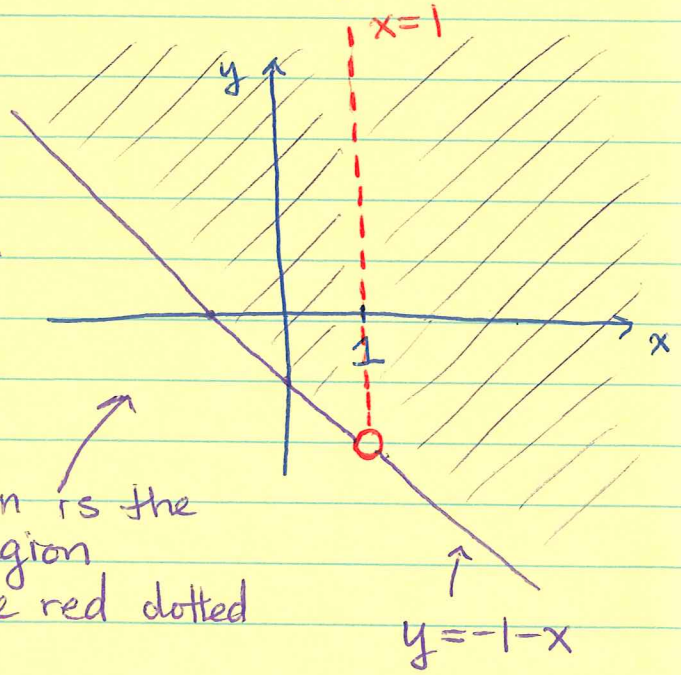 x=1
y
x
1
n is the
gion
e red dotted
y=-1-x